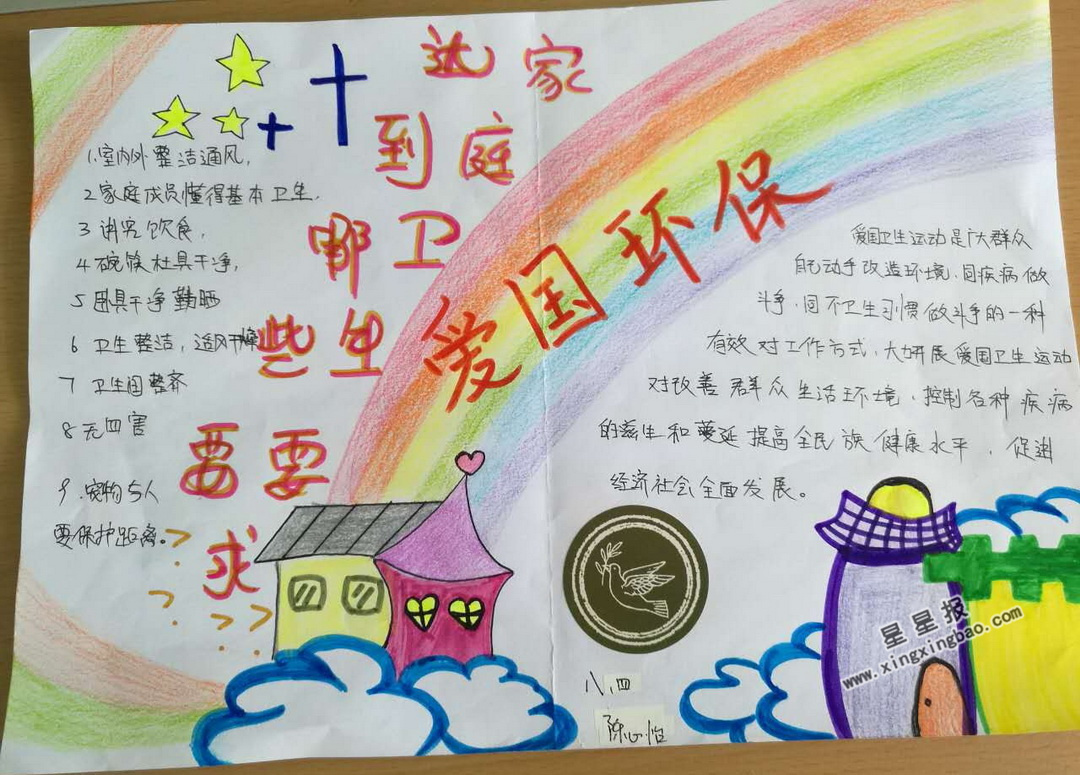 爱国环保
家庭卫生要
达到哪些要求
1.室内外整洁通风,
2家庭成员懂得基本卫生.
3 讲究饮食,
4 碗筷灶具干净,
5 具干净 勤晒
6 卫生整洁,通风干燥
7 卫生间整齐
8 无四害
9.宠物与人
要保护距离。
爱国卫生运动是广大群众
自己动手改造环境,同疾病做
斗争,同不卫生习惯做斗争的一种
有效对工作方式,大力开展爱国卫生运动
对改善群众生活环境,控制各种疾病
的滋生和蔓延提高全民族健康水平,促进
经济社会全面发展。
八.四
陈心怡
星星报
www.xingxingbao.com